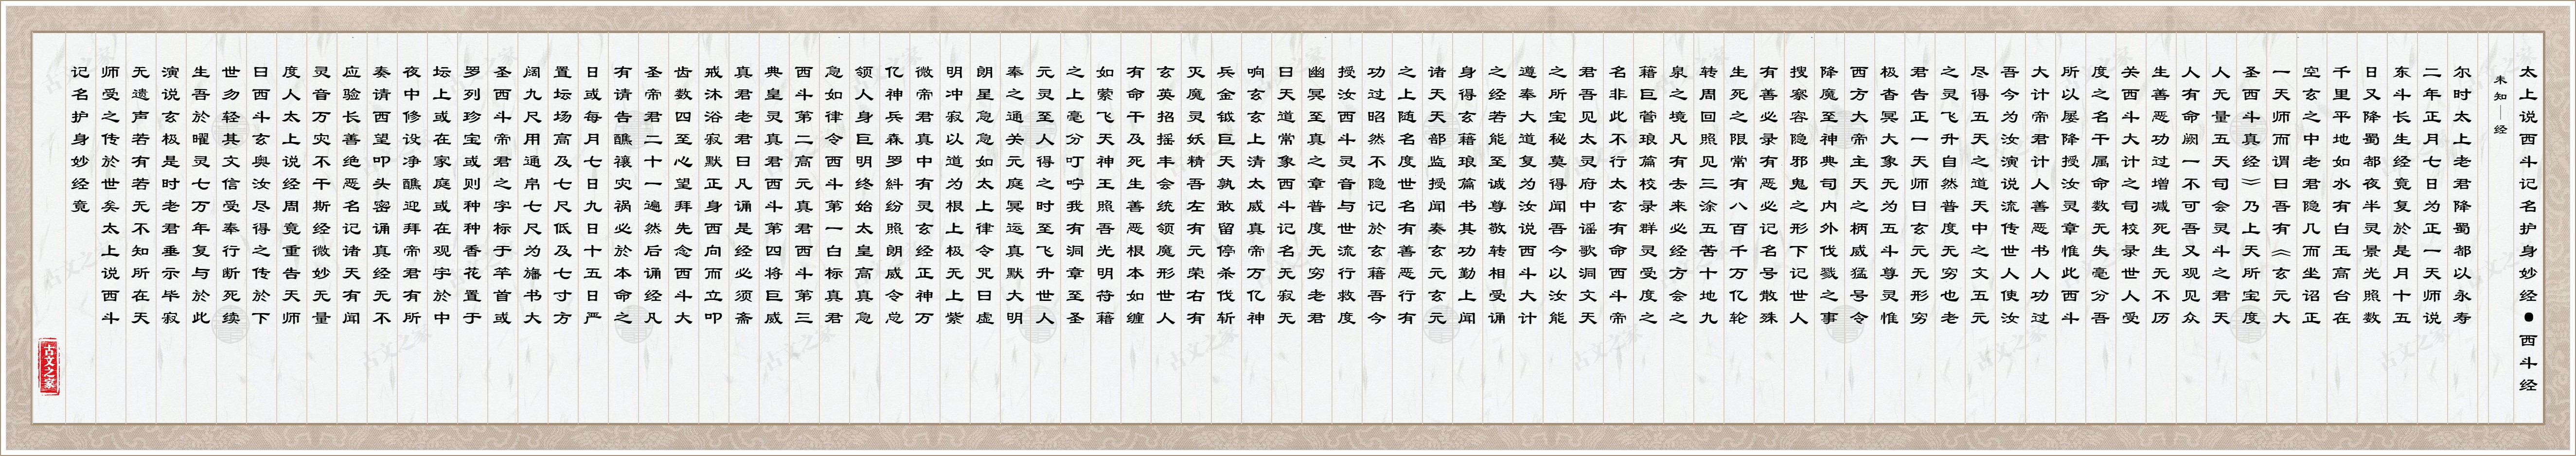 太上说西斗记名护身妙经●西斗经
未知—经
尔时太上老君降蜀都以永寿
二年正月七日为正一天师说
东斗长生经竟复於是月十五
日又降蜀都夜半灵景光照数
千里平地如水有白玉高台在
空玄之中老君隐几而坐诏正
一天师而谓曰吾有《玄元大
圣西斗真经》乃上天所宝度
人无量五天司会灵斗之君天
人有命阙一不可吾又观见众
生善恶功过增减死生无不历
关西斗大计之司校录世人受
度之名干属命数无失毫分吾
所以屡降授汝灵章惟此西斗
大计帝君计人善恶书人功过
吾今为汝演说流传世人使汝
尽得五天之道天中之文五元
之灵飞升自然普度无穷也老
君告正一天师曰玄元无形穷
极杳冥大象无为五斗尊灵惟
西方大帝主天之柄威猛号令
降魔至神典司内外伐戮之事
搜察容隐邪鬼之形下记世人
有善必录有恶必记名号散殊
生死之限常有八百千万亿轮
转周回照见三涂五苦十地九
泉之境凡有去来必经方会之
藉巨菅琅篇校录群灵受度之
名非此不行太玄有命西斗帝
君吾见太灵府中谣歌洞文天
之所宝秘莫得闻吾今以汝能
遵奉大道复为汝说西斗大计
之经若能至诚尊敬转相受诵
身得玄藉琅篇书其功勤上闻
诸天天部监授闻奏玄元玄元
之上随名度世名有善恶行有
功过昭然不隐记於玄藉吾今
授汝西斗灵音与世流行救度
幽冥至真之章普度无穷老君
曰天道常象西斗记名无寂无
响玄玄上清太威真帝万亿神
兵金钺巨天孰敢留停杀伐斩
灭魔灵妖精吾左有元荣右有
玄英招摇丰会统领魔形世人
有命干及死生善恶根本如缠
如萦飞天神王照吾光明符藉
之上毫分叮咛我有洞章至圣
元灵至人得之时至飞升世人
奉之通关元庭冥运真默大明
朗星急急如太上律令咒曰虚
明冲寂以道为根上极无上紫
微帝君真中有灵玄经正神万
亿神兵森罗纠纷照朗威令总
领人身巨明终始太皇高真急
急如律令西斗第一白标真君
西斗第二高元真君西斗第三
典皇灵真君西斗第四将巨威
真君老君曰凡诵是经必须斋
戒沐浴寂默正身西向而立叩
齿数四至心望拜先念西斗大
圣帝君二十一遍然后诵经凡
有请告醮禳灾祸必於本命之
日或每月七日九日十五日严
置坛场高及七尺低及七寸方
阔九尺用通帛七尺为旛书大
圣西斗帝君之字标于竿首或
罗列珍宝或则种种香花置于
坛上或在家庭或在观宇於中
夜中修设净醮迎拜帝君有所
奏请西望叩头密诵真经无不
应验长善绝恶名记诸天有闻
灵音万灾不干斯经微妙无量
度人太上说经周竟重告天师
曰西斗玄奥汝尽得之传於下
世勿轻其文信受奉行断死续
生吾於曜灵七万年复与於此
演说玄极是时老君垂示毕寂
无遗声若有若无不知所在天
师受之传於世矣太上说西斗
记名护身妙经竟
古文之家